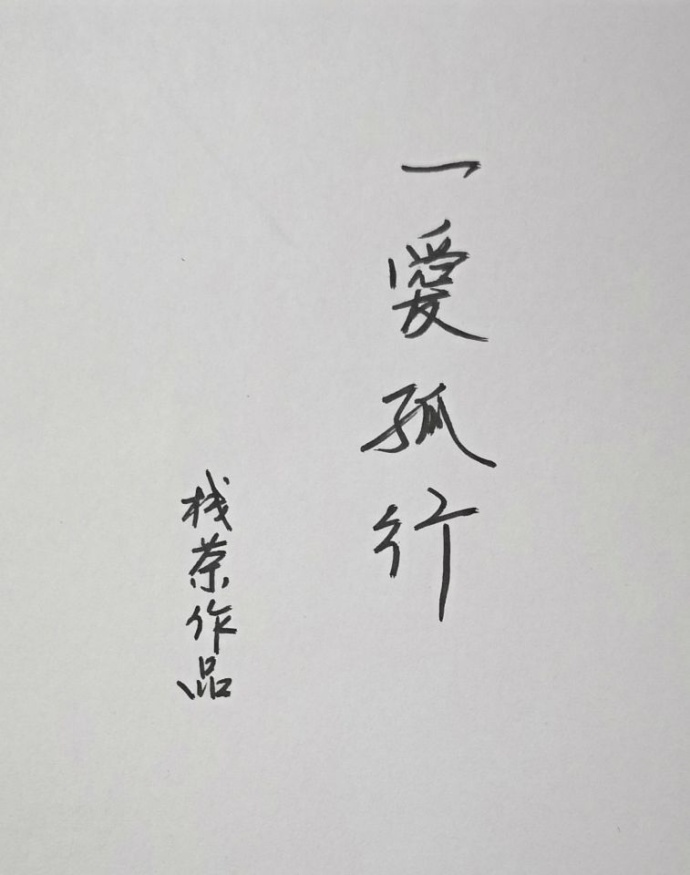 一愛孤行
栈茶作品